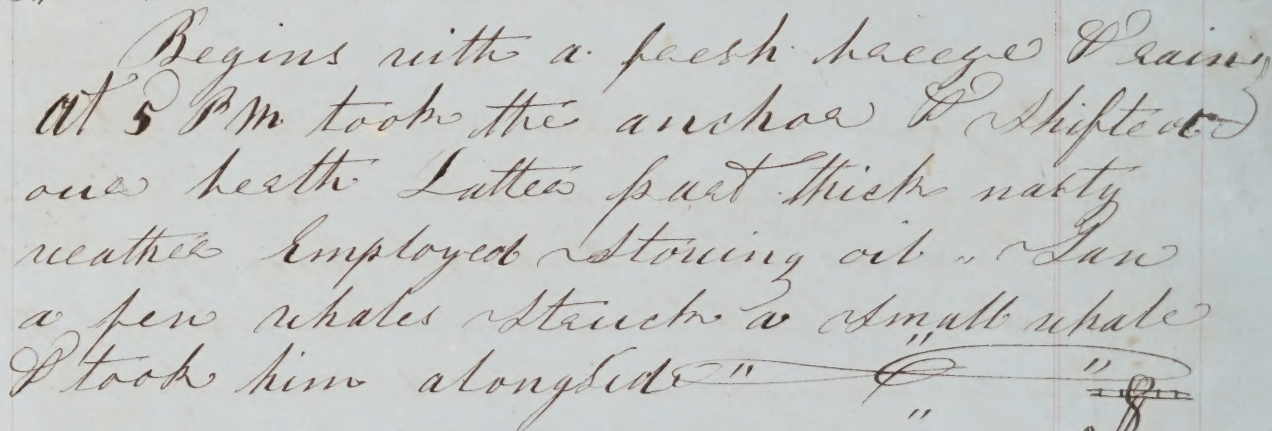 Begins with a fresh breeze & rain,
at 5 PM took the anchor & shifted
our berth Latter part thick nasty
weather Employed stowing oil " Saw
a few whales struck a small whale
& took him alongside " "